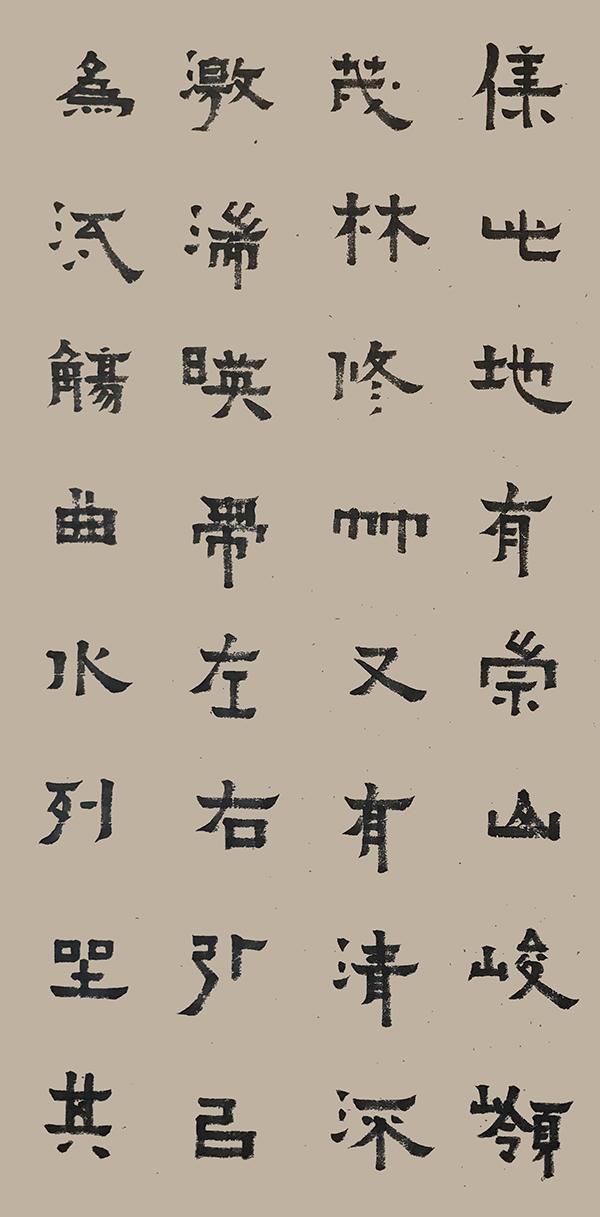 集此地有崇山峻嶺
茂林修竹又有清流
激湍暎帶左右引㠯
為流觴曲水列坐其